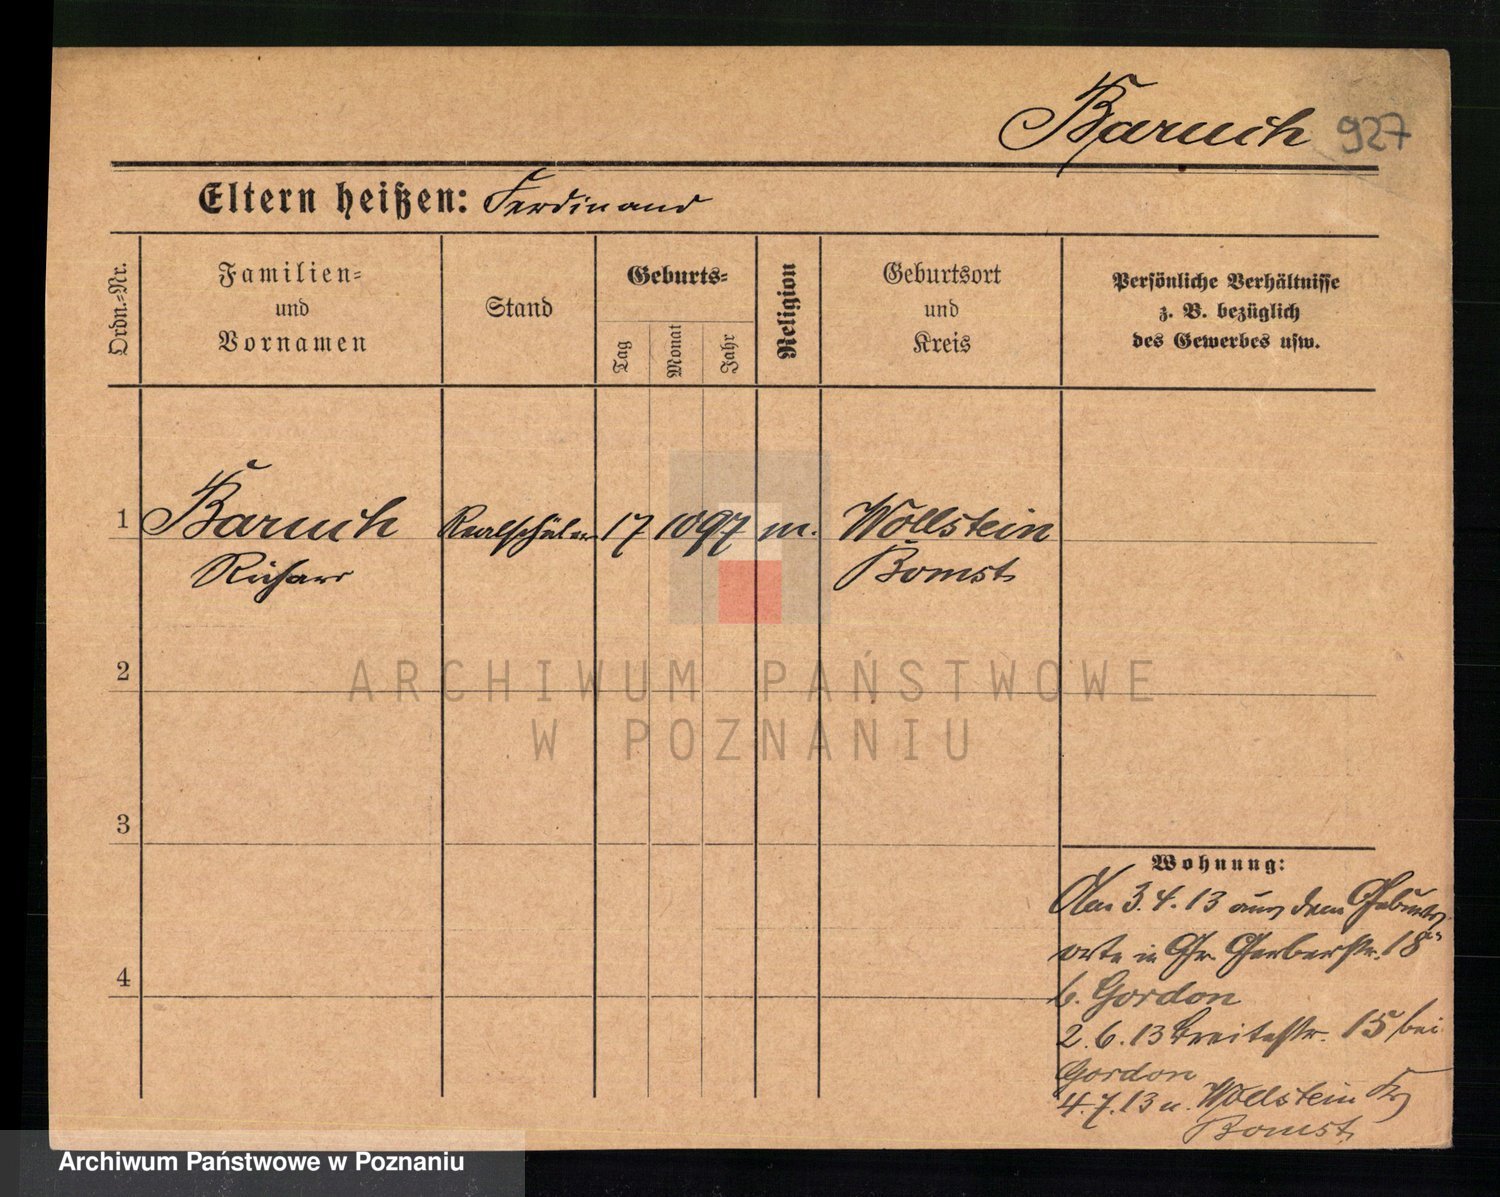 Baruch 927
Eltern heißen: Ferdinand
Ordn.=Nr.
Familien=
und
Vornamen
Stand
Geburts=
Tag
Monat
Jahr
Religion
Geburtsort
und
Kreis
Persönliche Verhältnisse
z. B. bezüglich
des Gewerbes usw.
1 Baruch Realschüler 17 10 97 m. Wollstein
Richard Bomst
2
3
4
Wohnung:
Am 3.4.13 aus dem Geburts
orte in Gr. Gerberstr. 18
b. Gordon
2.6.13 Breitestr. 15 bei
Gordon
4.7.13 n. Wollstein Kr
Bomst
ARCHIWUM PAŃSTWOWE
W POZNANIU
Archiwum Państwowe w Poznaniu